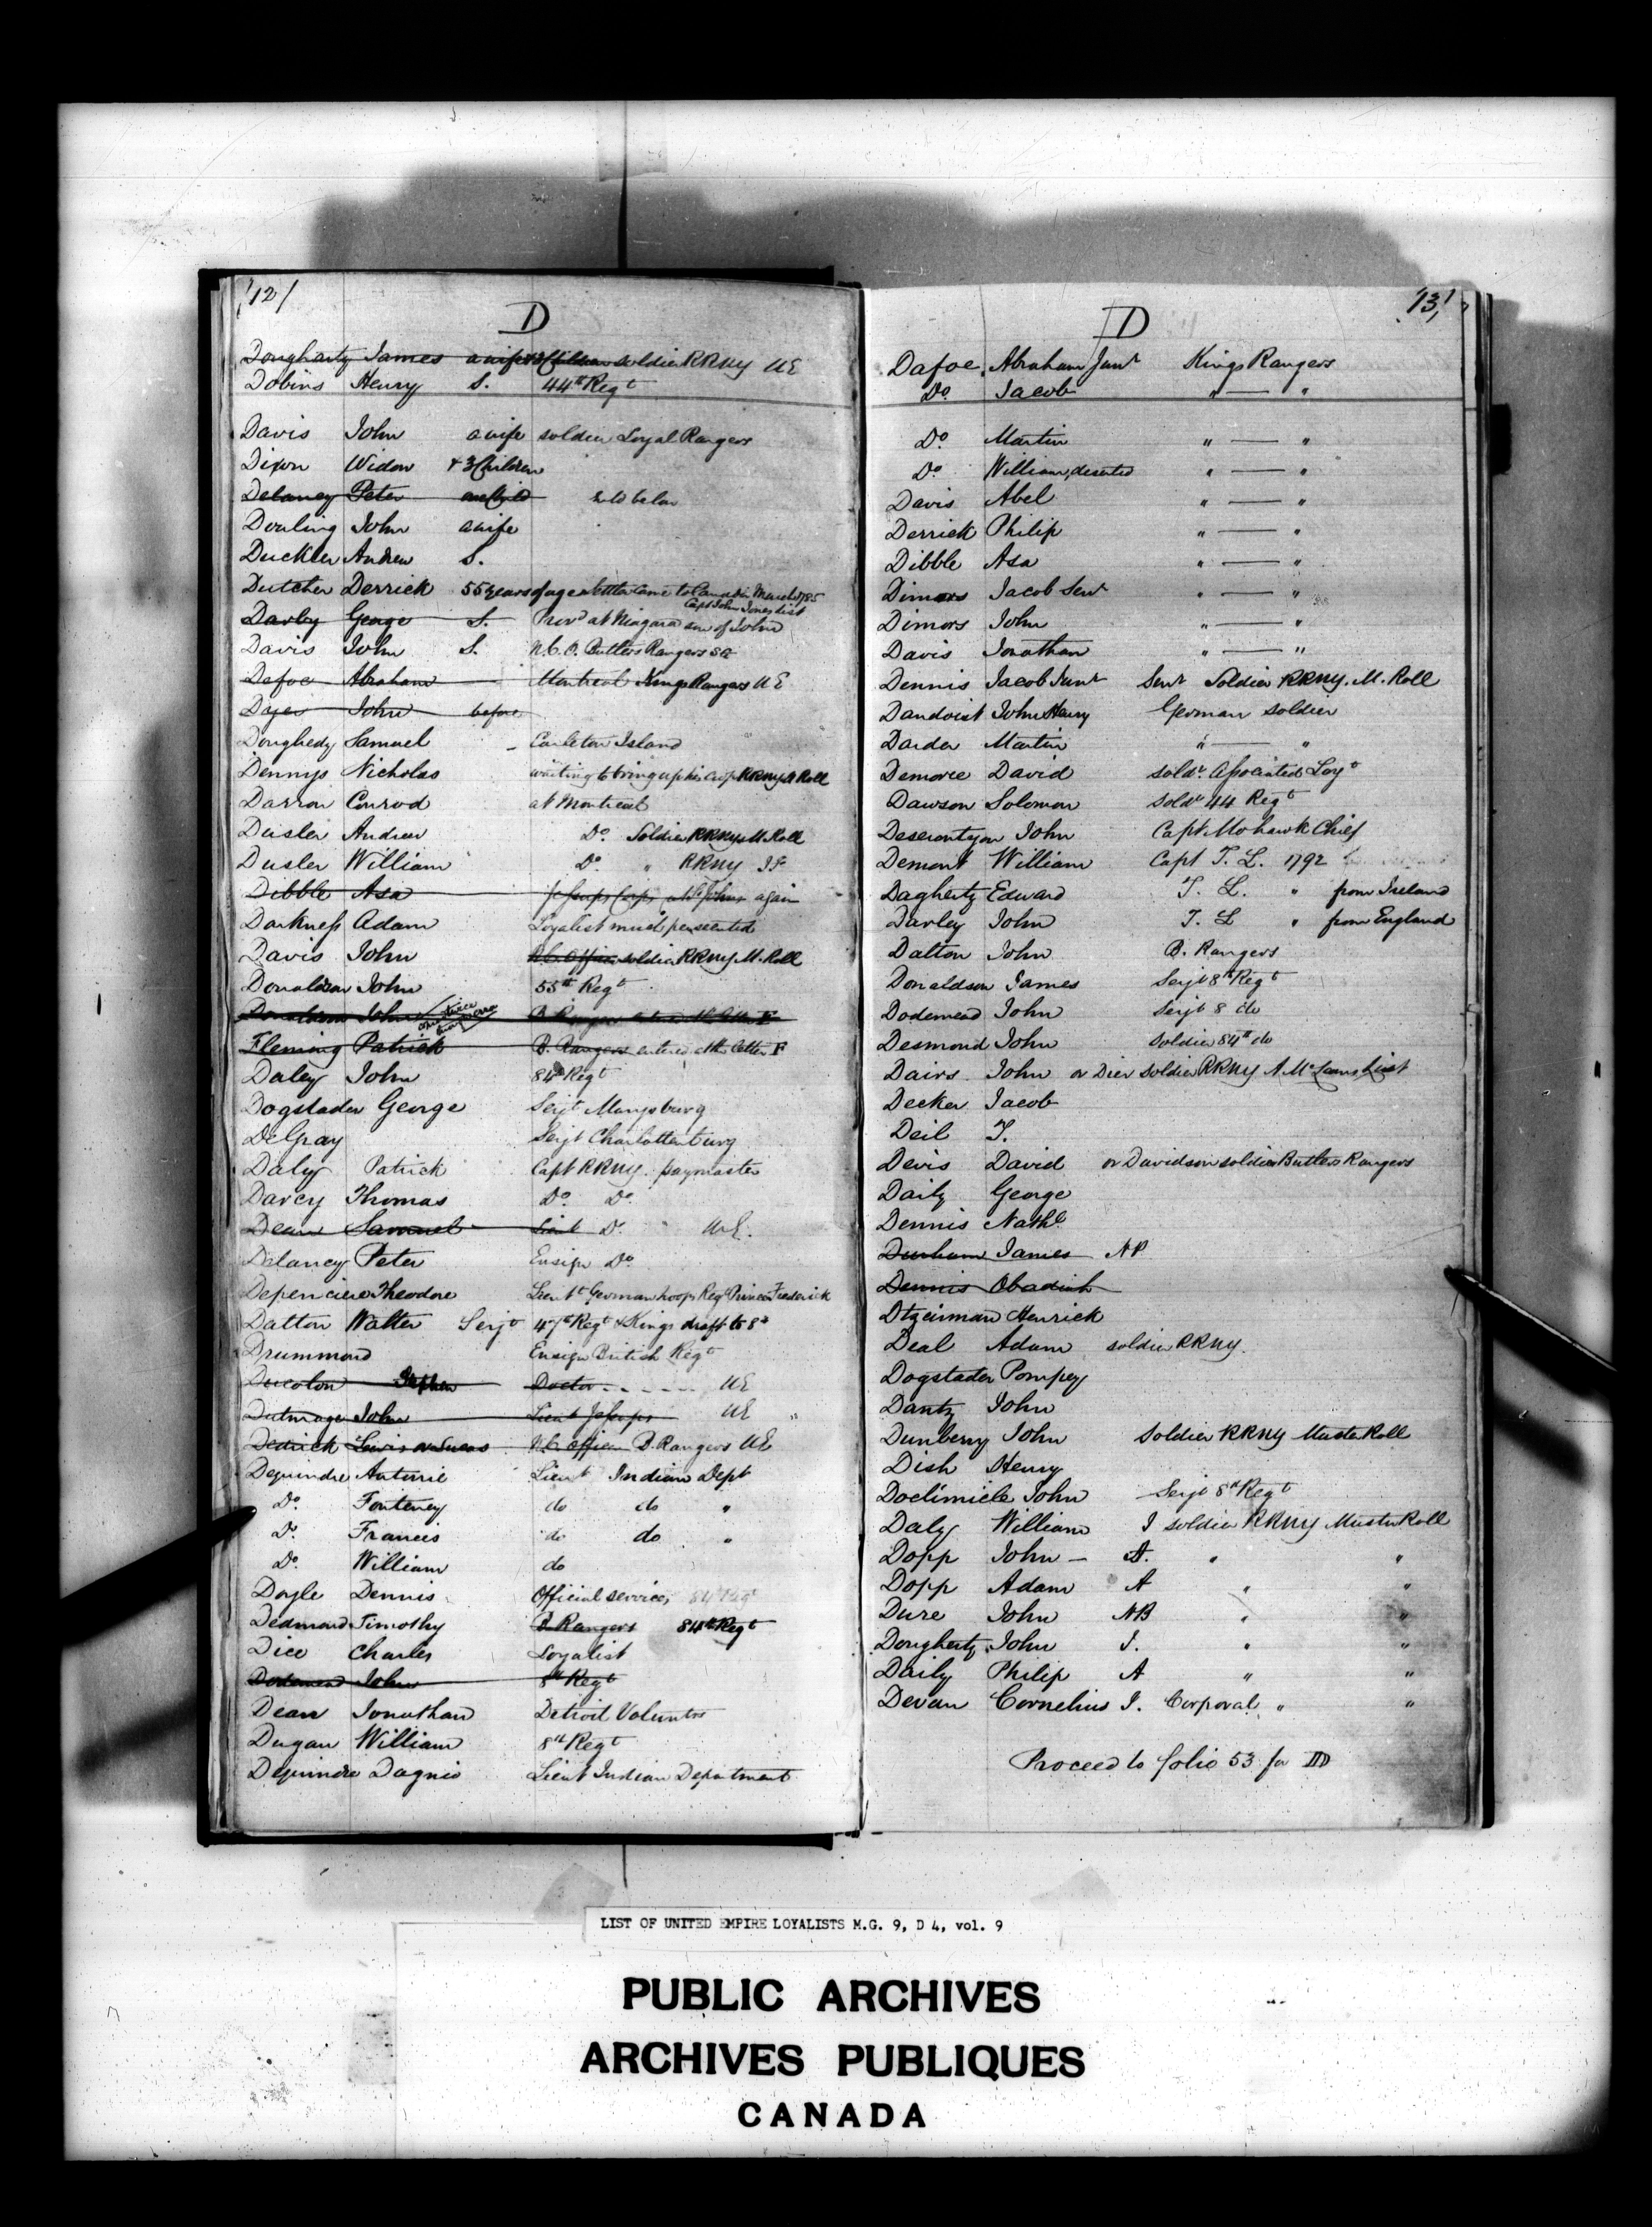 12/
D
Dougharty James a wife & 3 Children soldier RRNY UE
Dobins Henry S. 44th Regt
Davis John a wife soldier Loyal Rangers
Dixon Widow + 3 Children
Delaney Peter one Child
Douling John a wife
Duckler Andrew S.
Dutcher Derrick 55 years of age settler came to Canada in March 1785
Capt John Jones list
Darby George S. Provd at Niagara son of John
Davis John S. N.C.O. Butlers Rangers
Defoe Abraham Montreal Kings Rangers UE
Dajer John before
Doughedy Samuel Carleton Island
Dennys Nicholas waiting to bring up his crop RRNY M Roll
Darron Conrod at Montreal
Dusler Andrew Do. Soldier RRNY M. Roll
Dusler William Do. " RRNY
Dibble Asa Jessups Corps at St Johns again
Darkness Adam Loyalist much persecuted
Davis John N.C. Officer soldier RRNY M. Roll
Donaldson John 55th Regt
Donaldson John B Rangers
Fleming Patrick B. Rangers entered at the letter F
Daley John 84th Regt
Dogstader George Serjt Marysburg
DeGray Serjt Charlottenburg
Daly Patrick Capt RRNY. paymaster
Darcy Thomas Do. Do.
Dean Samuel Lieut Do. UE.
Delancy Peter Ensign Do.
Depenciere Theodore Lieutt German troops Regt Prince Frederick
Dalton Walter Serjt 47th Regt & Kings draft to 8th
Drummond Ensign British Regt
Ducolon Stephen Doctor - - - - UE
Dulmage John Lieut Jessups UE
Dedrick Lewis or Lucas N.C. Officer B. Rangers UE
Dequindre Anterrie Lieut Indian Dept
Do. Fonteney do do "
Do. Francis do do "
Do. William do
Doyle Dennis Official services 84 Regt
Dedmond Timothy B Rangers 84th Regt
Dice Charles Loyalist
Dodemead John 8th Regt
Dean Jonathan Detroit Voluntrs
Dugan William 8th Regt
Dequindre Dagnio Lieut Indian Department
13/
D
Dafoe Abraham Junr Kings Rangers
Do. Jacob " — "
Do. Martin " — "
Do. William, deserted " — "
Davis Abel " — "
Derrick Philip " — "
Dibble Asa " — "
Dimors Jacob Senr " — "
Dimors John " — "
Davis Jonathan " — "
Dennis Jacob Junr Senr Soldier RRNY. M. Roll
Dandoist John Henry German soldier
Darder Martin " — "
Demorce David soldr Associated Loyt
Dawson Solomon Soldr 44 Regt
Deserontyon John Capt. Mohawk Chief
Demont William Capt T. L. 1792
Dagherty Edward T. L. " from Ireland
Darley John T. L " from England
Dalton John B. Rangers
Donaldson James Serjt 8th Regt
Dodemead John Serjt 8 do
Desmond John Soldier 84th do
Dairs John or Dier soldier RRNY A McLeans List
Decker Jacob
Deil T.
Devis David or Davidson soldier Butlers Rangers
Daily George
Dennis Nathl
Durham James NP
Dennis Obadiah
Dtzeinman Henrick
Deal Adam soldier RRNY.
Dogstader Pompey
Dantz John
Dunberry John Soldier RRNY Muster Roll
Dish Henry
Doclimicle John Serjt 8th Regt
Daly William I soldier RRNY Muster Roll
Dopp John — A. " "
Dopp Adam A " "
Dure John NB " "
Dougherty John I. " "
Daily Philip A " "
Devan Cornelius I. Corporal " "
Proceed to folio 53 for D
LIST OF UNITED EMPIRE LOYALISTS M.G. 9, D 4, vol. 9
PUBLIC ARCHIVES
ARCHIVES PUBLIQUES
CANADA